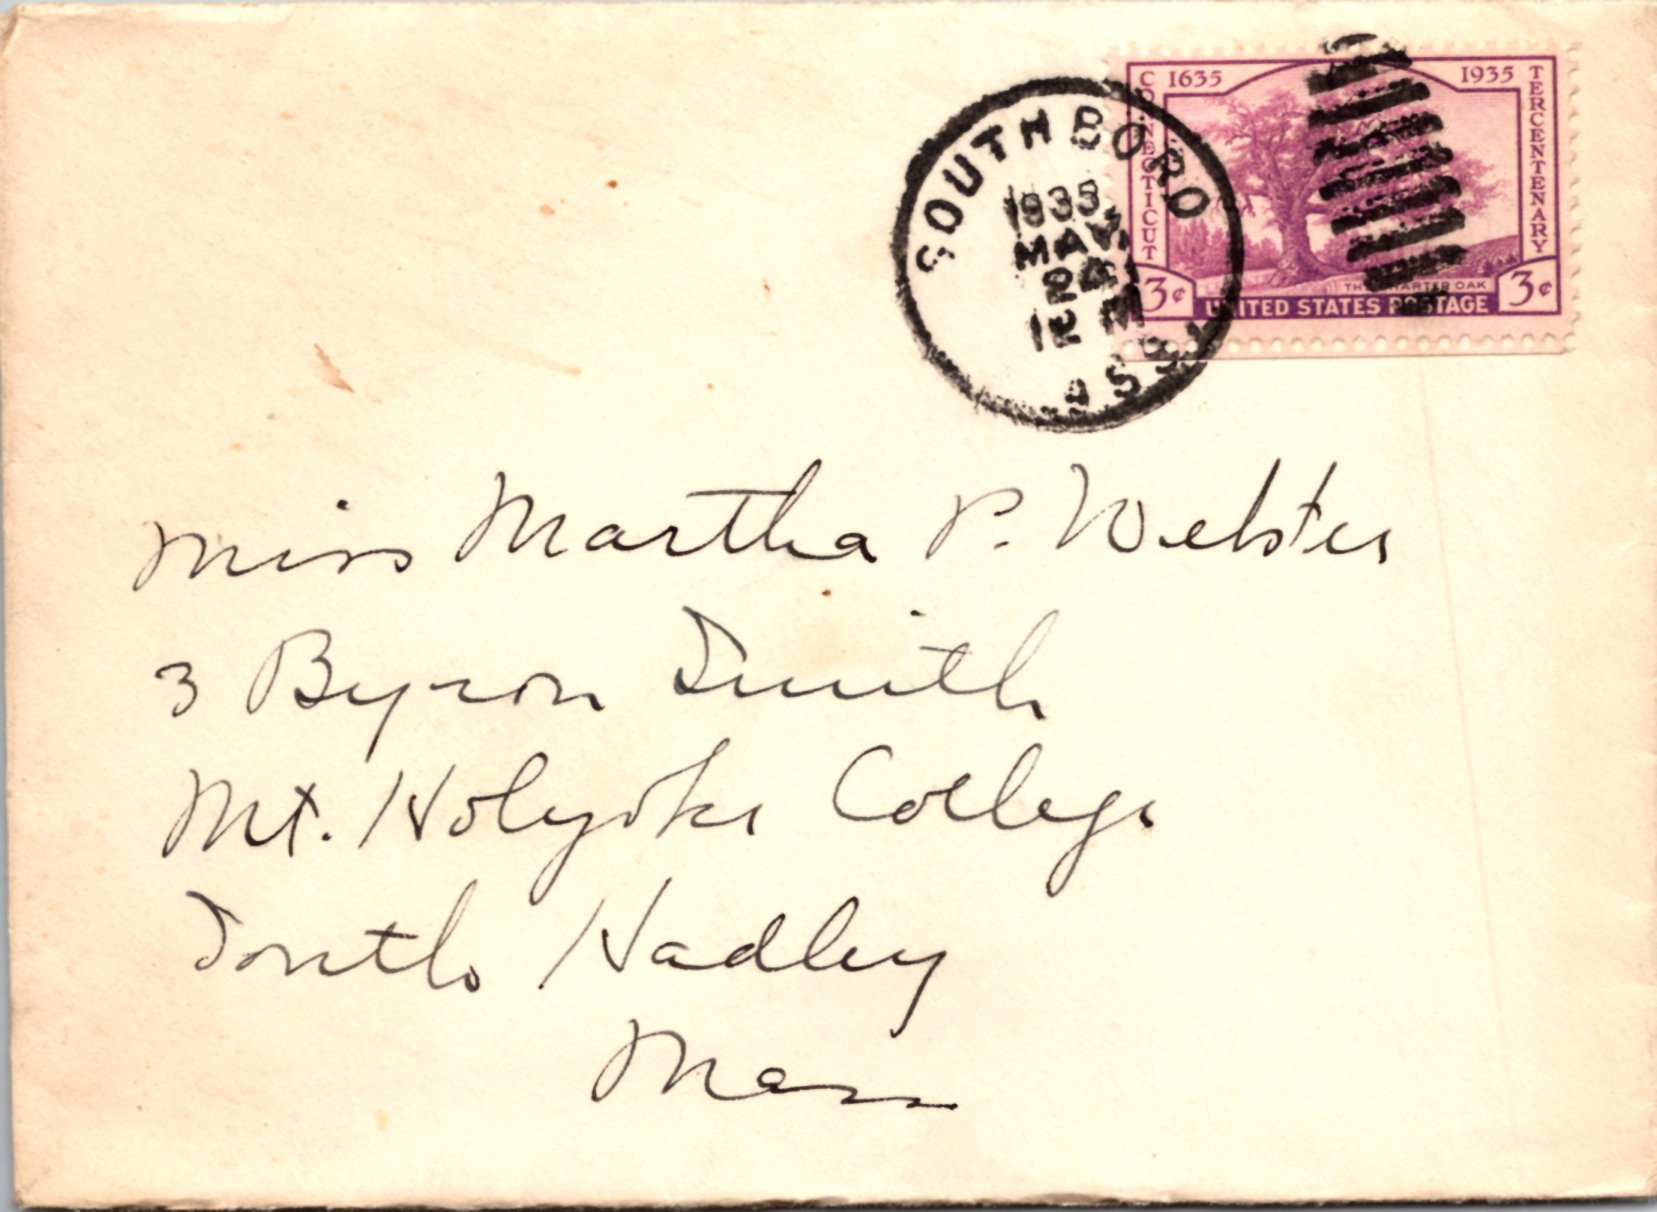 1635 1935
CONNECTICUT
TERCENTENARY
THE CHARTER OAK
3¢ 3¢
UNITED STATES POSTAGE
SOUTHBORO
1935
MAY
24
12 M
MASS.
Miss Martha P. Webster
3 Byron Smith
Mt. Holyoke College
South Hadley
Mass